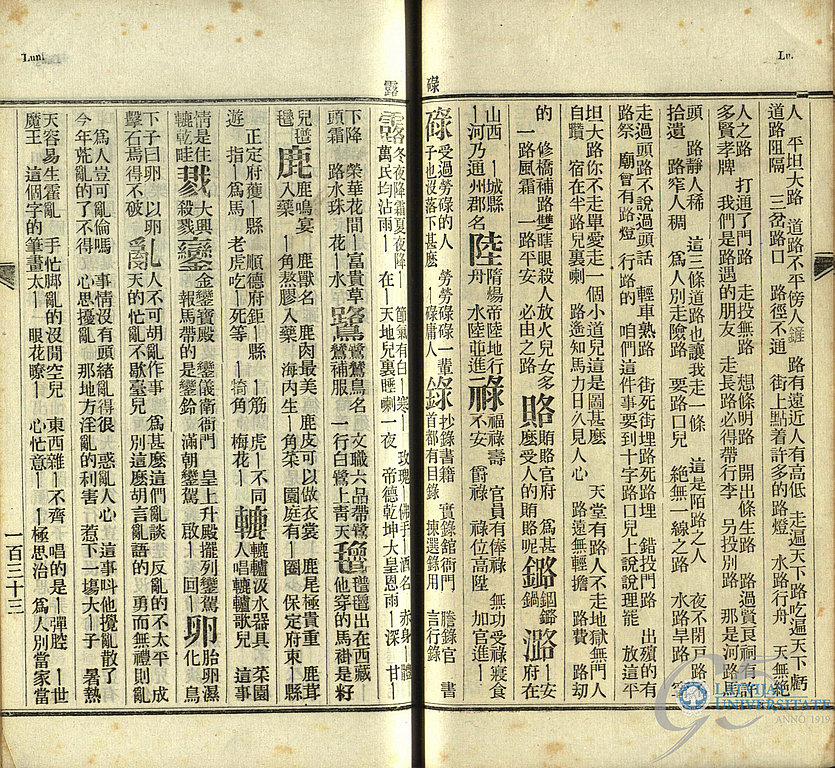 Lu.
碌
人　平坦大路　道路不平傍人鏟　路有遠近人有高低　走遍天下路吃遍天下虧
道路阻隔　三岔路口　路徑不通　街上點着許多的路燈　水路行舟　天無絕
人之路　打通了門路　走投無路　想條明路　開出條生路　路過賢良祠有
多賢孝牌　我們是路遇的朋友　走長路必得帶行李　另投別路　那是河路
頭　路靜人稀　這三條道路也讓我走一條　這是陌路之人　夜不閉戶路
拾遺　路窄人稠　爲人別走險路　要路口兒　絕無一線之路　水路旱路
走過頭路不說過頭話　輕車熟路　街死街埋路死路埋　錯投門路　出殯的有
路祭　廟會有路燈　行路的　咱們這件事要到十字路口兒上說說理罷　放這平
坦大路你不走單愛走一個小道兒這是圖甚麼　天堂有路人不走地獄無門人
自鑽　宿在半路兒裏喇　路遙知馬力日久見人心　路遠無輕擔　路費　路劫
的　修橋補路雙瞎眼殺人放火兒女多　賂　賄賂官府　爲甚麼受人的賄賂呢　鏴　潞　丨安府在
一路風霜　一路平安　必由之路
山西　丨城縣　丨河乃通州郡名　陸　隋煬帝陸地行舟　水陸並進　祿　福祿壽　官員有俸祿　無功受祿寢食不安　爵祿　祿位高陞　加官進丨
碌　受過勞碌的人　勞勞碌碌一輩子也沒落下甚麽　丨碌庸人　錄　抄錄書籍　實錄舘衙門　謄錄官　書首都有目錄　揀選錄用　言行錄
Luni
露
露　冬夜降霜夏夜降丨　節氣有白丨寒丨　玫瑰丨佛手丨酒名　赤身丨體　萬民均沾雨丨　在丨天地兒裏睡丨一夜　帝德乾坤大皇恩雨丨深　甘丨
下降　榮華花間丨富貴草頭霜　路水珠　花丨水　鷺　鷺鷥鳥名　文職六品帶鷺鷥補服　一行白鷺上青天　氇　氆氇出在西藏　他穿的馬褂是氆氇
鹿　鹿鳴宴　鹿獸名　鹿肉最美　鹿皮可以做衣裳　鹿尾極貴重　鹿茸入藥　丨角熬膠入藥　海内生丨角菜　園庭有丨圈　保定府東丨縣
正定府獲丨縣　順德府鉅丨縣　丨筋　虎丨不同　轆　轆轤汲水器具　菜園
遊　指丨爲馬　老虎吃丨死等　丨犄角　梅花丨　人唱轆轤歌兒　這事
情是住轆乾畦　戮　大興殺戮　鑾　金鑾寶殿　鑾儀衛衙門　皇上升殿擺列鑾駕　報馬帶的是鑾鈴　滿朝鑾駕　啟丨　回丨　卵　胎卵濕化　鳥
下子曰卵　以卵擊石焉得不破　亂　人不可胡亂作事　爲甚麽這們亂談　反亂的不太平　成天的忙亂不歇臺兒　別這麽胡言亂語的　勇而無禮則亂
爲人豈可亂倫嗎　事情沒有頭緒亂得很　惑亂人心　這事呌他攪亂散了
今年荒亂的了不得　心思擾亂　那地方淫亂的利害　惹下一塲大丨子　暑熱
天容易生霍亂　手忙脚亂的沒閒空兒　東西雜丨不齊　唱的是丨彈腔　丨世
魔王　這個字的筆畫太丨　眼花瞭丨　心忙意丨　丨極思治　爲人別當家當
一百三十三
LATVIJAS UNIVERSITATE
ANNO 1919
95